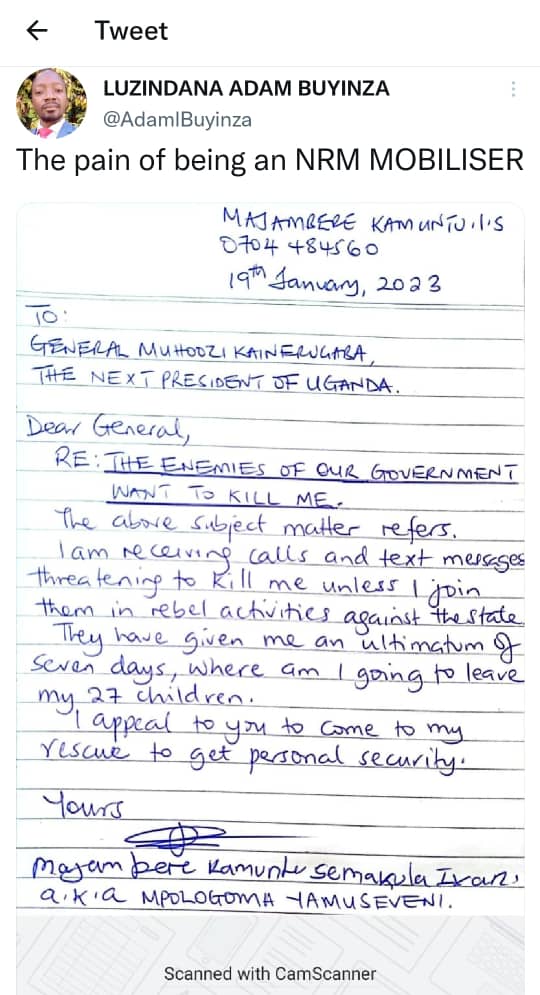 Tweet
LUZINDANA ADAM BUYINZA
@AdamIBuyinza
The pain of being an NRM MOBILISER
MAJAMBERE KAMUNTU.I.S
0704 484560
19th January, 2023
TO:
GENERAL MUHOOZI KAINERUGABA,
THE NEXT PRESIDENT OF UGANDA.
Dear General,
RE: THE ENEMIES OF OUR GOVERNMENT
WANT TO KILL ME.
The above subject matter refers.
I am receiving calls and text messages
threatening to kill me unless I join
them in rebel activities against the state
They have given me an ultimatum of
seven days, where am I going to leave
my 27 children.
I appeal to you to come to my
rescue to get personal security.
Yours
Majambere Kamuntu Semakula Ivan.
a.k.a MPOLOGOMA YAMUSEVENI.
Scanned with CamScanner